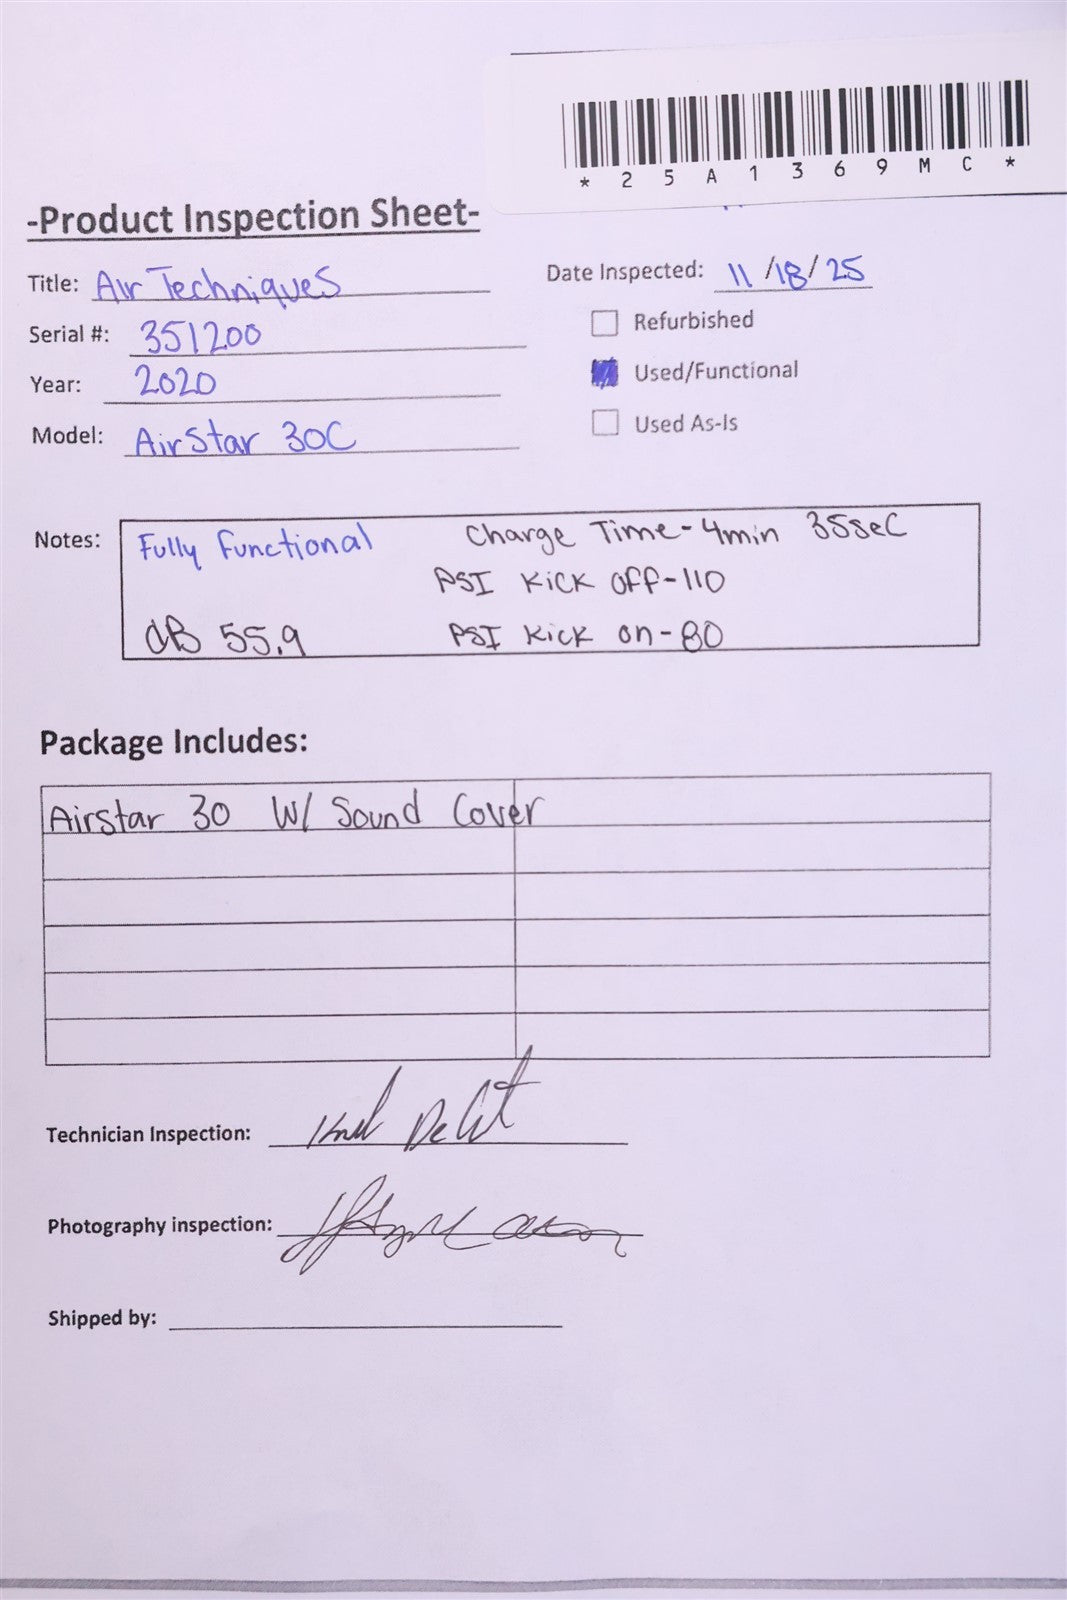 *25A1369MC*
-Product Inspection Sheet-
Title: Air Techniques
Date Inspected: 11/18/25
Serial #: 351200
Refurbished
Year: 2020
Used/Functional
Model: AirStar 30C
Used As-Is
Notes: Fully Functional
Charge Time-4min 35sec
PSI Kick Off-110
dB 55.9
PSI Kick on-80
Package Includes:
Airstar 30 W/ Sound Cover
Technician Inspection:
Photography inspection:
Shipped by: